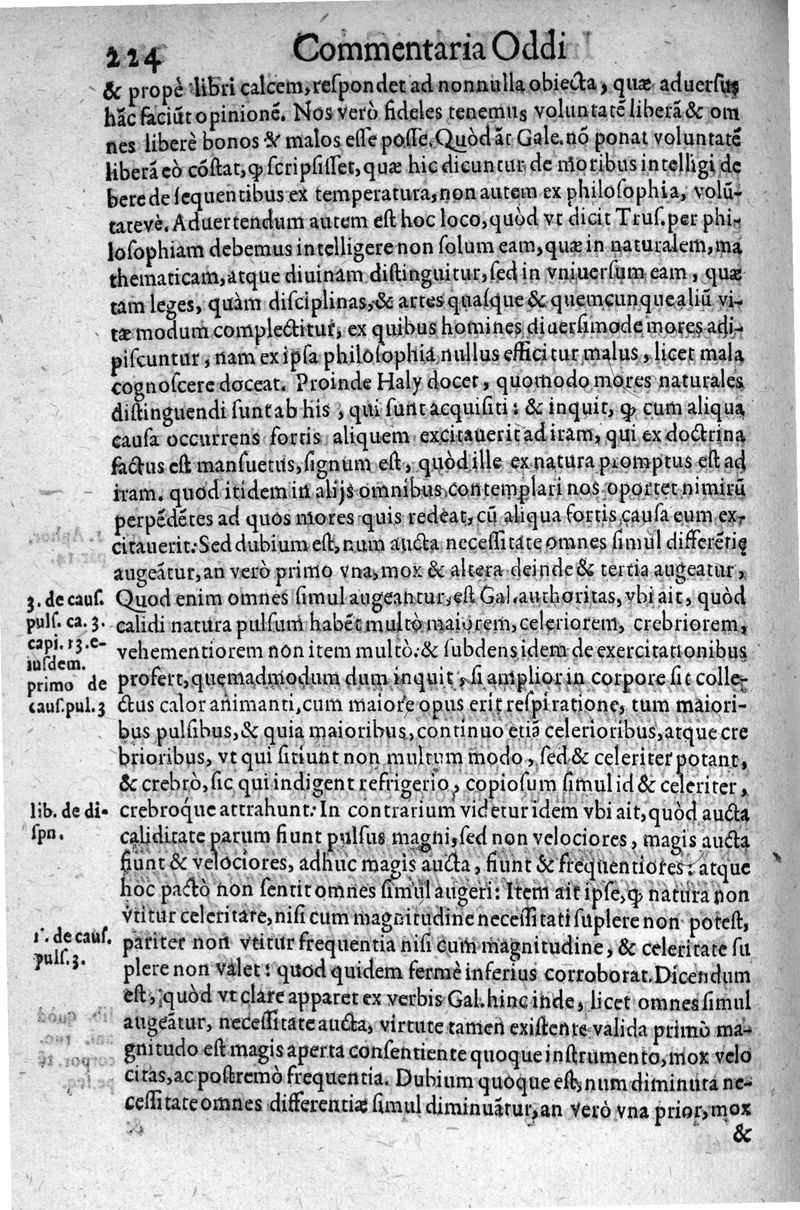 224 Commentaria Oddi
& propè libri calcem, reſpondet ad nonnulla obiecta, quæ aduerſus
hãc faciũt opinionẽ. Nos verò fideles tenemus voluntatẽ liberã & om
nes liberè bonos & malos eſſe poſſe. Quòd āt Gale. nõ ponat voluntatẽ
liberã eò cõſtat, ꝙ ſcripſiſſet, quæ hic dicuntur de moribus intelligi de
bere de ſequentibus ex temperatura, non autem ex philoſophia, volũ-
tatevè. Aduertendum autem eſt hoc loco, quòd vt dicit Truſ. per phi-
loſophiam debemus intelligere non ſolum eam, quæ in naturalem, ma
thematicam, atque diuinam diſtinguitur, ſed in vniuerſum eam, quæ
tam leges, quàm diſciplinas, & artes quaſque & quemcunque aliũ vi-
tæ modum complectitur, ex quibus homines diuerſimode mores adi-
piſcuntur, nam ex ipſa philoſophia nullus efficitur malus, licet mala
cognoſcere doceat. Proinde Haly docet, quomodo mores naturales
diſtinguendi ſunt ab his, qui ſunt acquiſiti: & inquit, ꝙ cum aliqua
cauſa occurrens fortis aliquem excitauerit ad iram, qui ex doctrina
factus eſt manſuetus, ſignum eſt, quòd ille ex natura promptus eſt ad
iram. quod itidem in alijs omnibus contemplari nos oportet nimirũ
perpẽdẽtes ad quos mores quis redeat, cũ aliqua fortis cauſa eum ex-
citauerit. Sed dubium eſt, num aucta neceſſitate omnes ſimul differẽtię
augeãtur, an verò primo vna, mox & altera deinde & tertia augeatur,
3. de cauſ. Quod enim omnes ſimul augeantur, eſt Gal. authoritas, vbi ait, quòd
pulſ. ca. 3. calidi natura pulſum habẽt multò maiorem, celeriorem, crebriorem,
capi. 13. e- vehementiorem non item multò: & ſubdens idem de exercitationibus
iuſdem.
primo de profert, quemadmodum dum inquit, ſi amplior in corpore ſit colle-
cauſ. pul. 3 ctus calor animanti, cum maiore opus erit reſpiratione, tum maiori-
bus pulſibus, & quia maioribus, continuo etiã celerioribus, atque cre
brioribus, vt qui ſitiunt non multum modo, ſed & celeriter potant,
& crebrò, ſic qui indigent refrigerio, copioſum ſimul id & celeriter,
lib. de di- crebroque attrahunt. In contrarium videtur idem vbi ait, quòd aucta
ſpn. caliditate parum fiunt pulſus magni, ſed non velociores, magis aucta
fiunt & velociores, adhuc magis aucta, fiunt & frequentiores: atque
hoc pactò non ſentit omnes ſimul augeri: Item ait ipſe, ꝙ natura non
vtitur celeritate, niſi cum magnitudine neceſſitati ſuplere non poteſt,
1. de cauſ. pariter non vtitur frequentia niſi cum magnitudine, & celeritate ſu
pulſ. 3. plere non valet: quod quidem fermè inferius corroborat. Dicendum
eſt, quòd vt clare apparet ex verbis Gal. hinc inde, licet omnes ſimul
augeãtur, neceſſitate aucta, virtute tamen exiſtente valida primò ma-
gnitudo eſt magis aperta conſentiente quoque inſtrumento, mox velo
citas, ac poſtremò frequentia. Dubium quoque eſt, num diminuta ne-
ceſſitate omnes differentiæ ſimul diminuãtur, an verò vna prior, mox
&